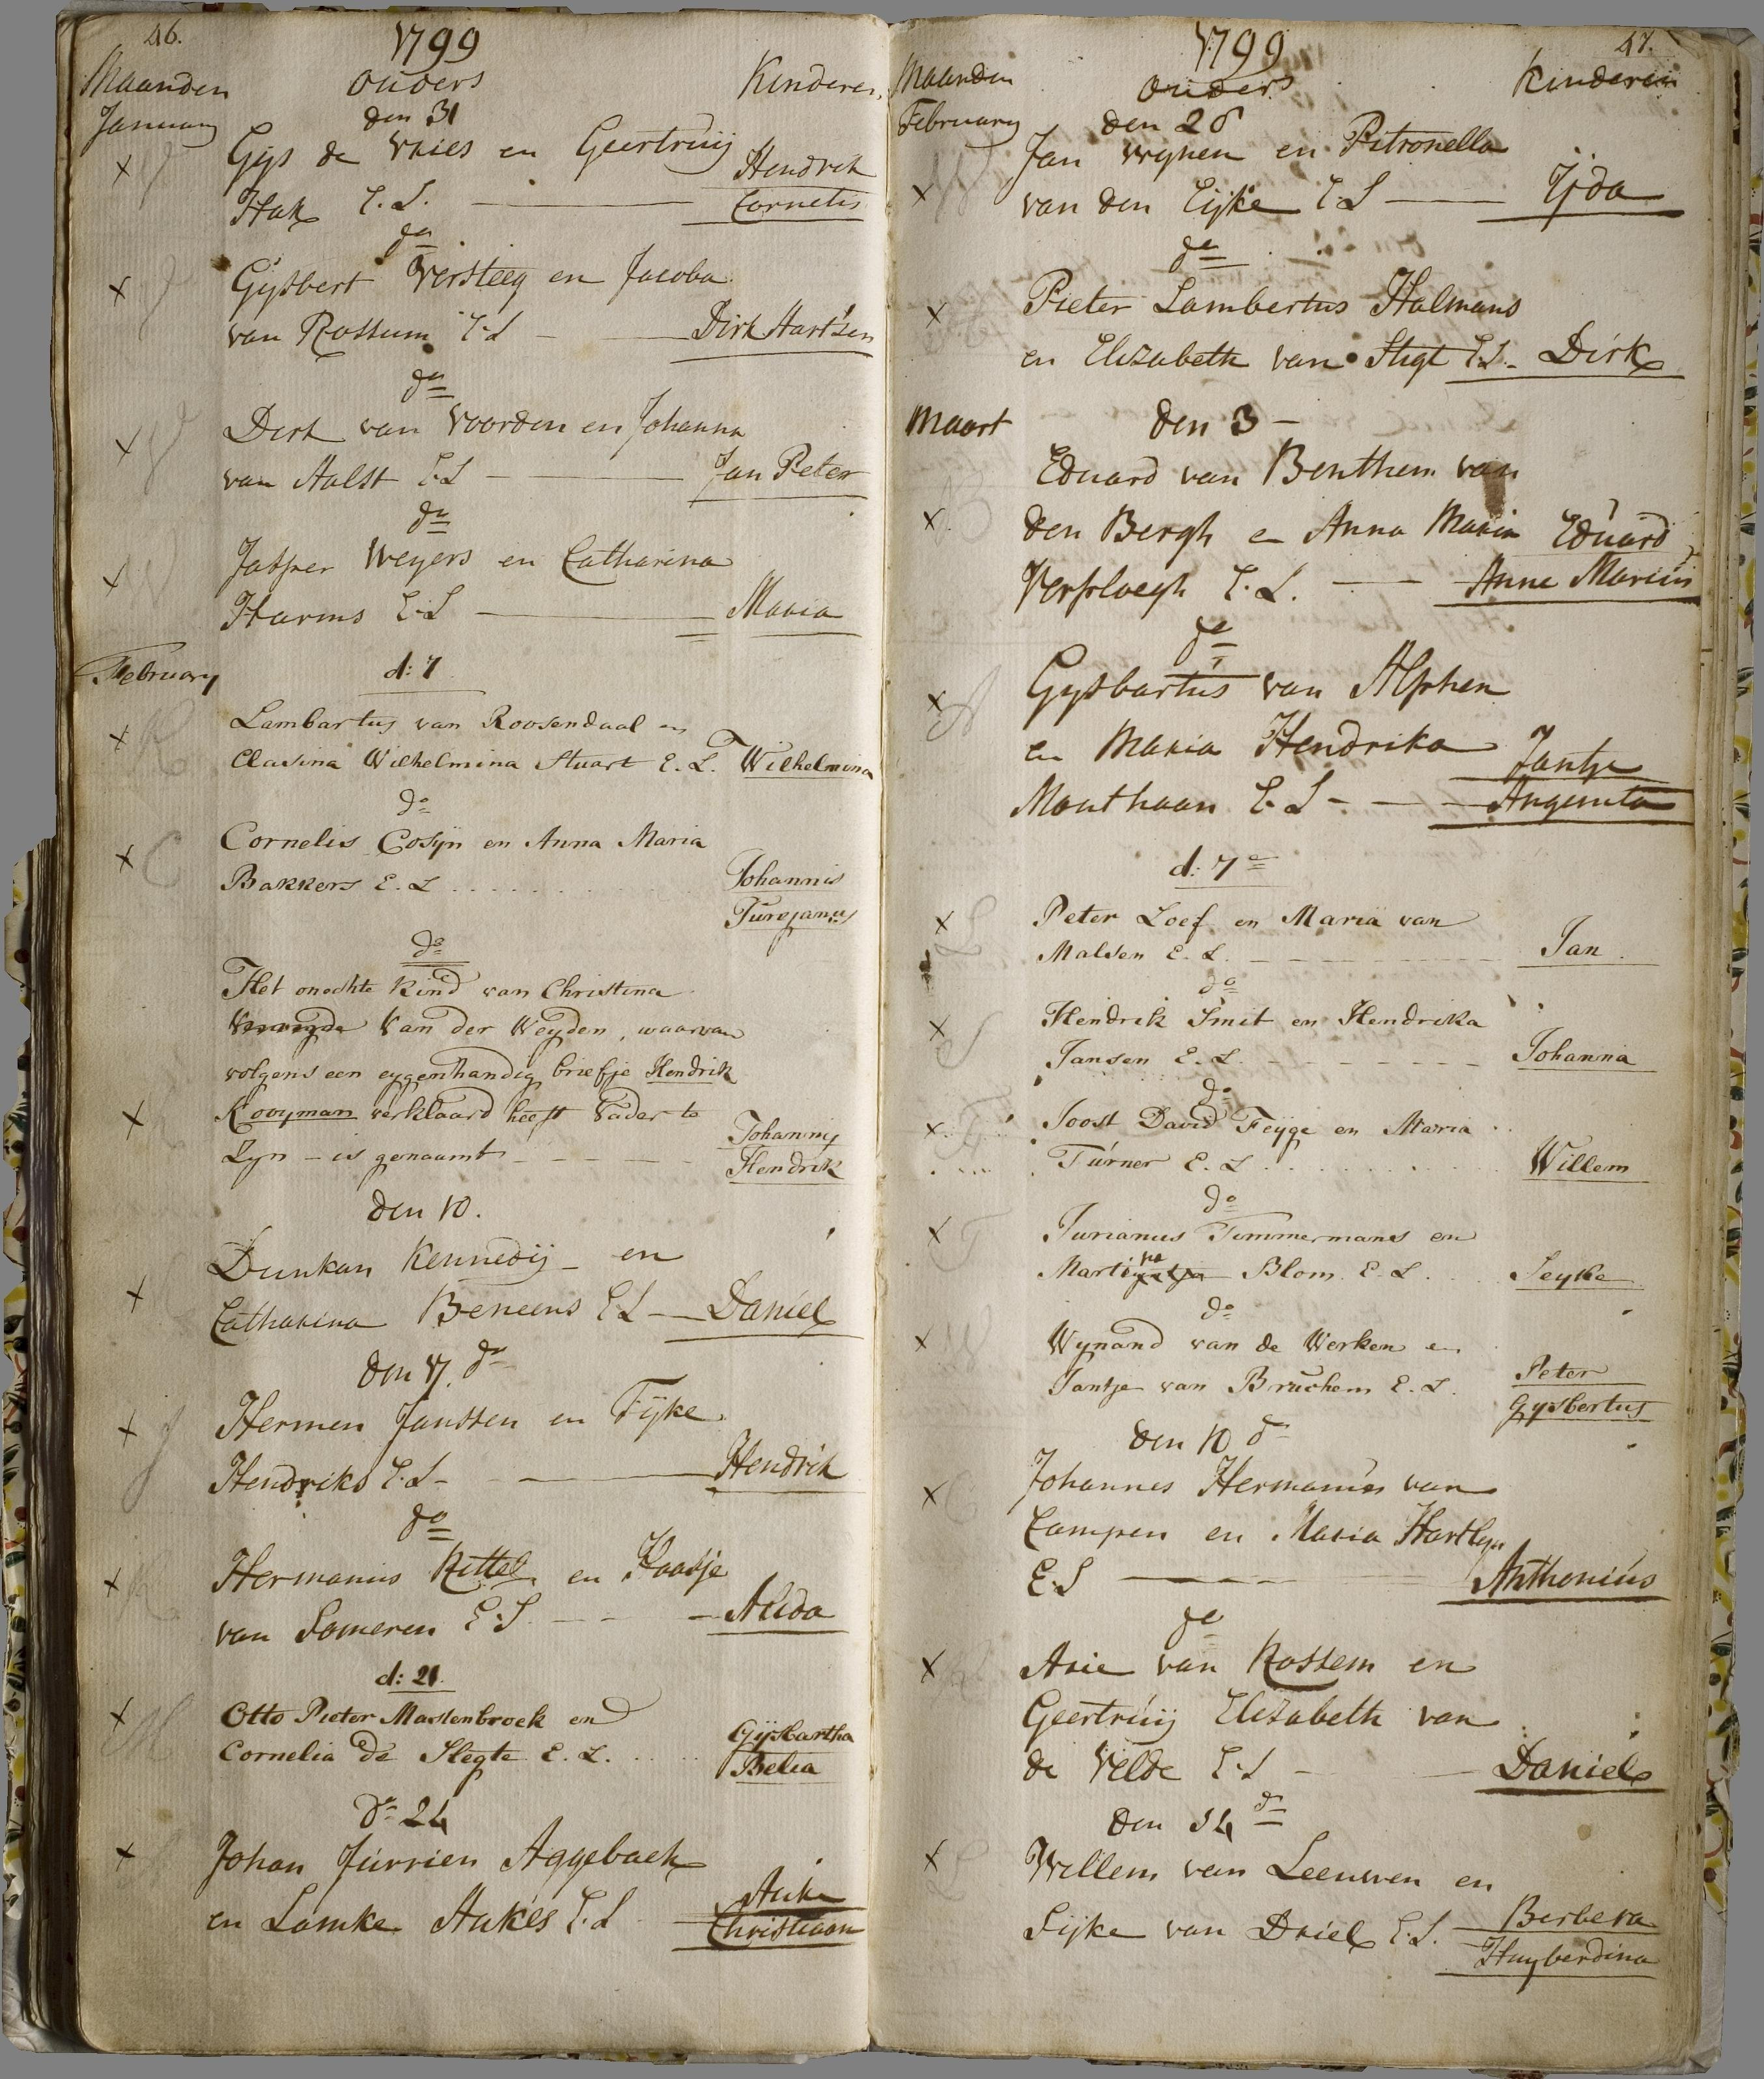 46.
1799
Maanden Ouders Kinderen
January den 31
Gijs de Vries en Geertruij Hendrik
Hak E.L. Cornelis
do
Gijsbert Versteeg en Jacoba
van Rossum E.L Dirk Hartsen
do
Derk van Voorden en Johanna
van Aalst E.L Jan Peter
do
Jasper Weyers en Catharina
Harms E.L Maria
February d: 7
Lambartus van Roosendaal en
Clasina Wilhelmina Stuart E.L. Wilhelmina
do
Cornelis Cosyn en Anna Maria
Bakkers E.L Johannis
Jurejanus
do
Het onechte Kind van Christina
Van der Weyden, waarvan
volgens een eygenhandig briefje Hendrik
Kooyman verklaard heeft Vader te
Zyn - is genaamt Johannis
Hendrik
den 10.
Dunkan Kennedij en
Catharina Beneens E.L Daniel
den 17. do
Hermen Janssen en Fijke
Hendriks E.L Hendrik
do
Hermanus Kittel en Kaatje
van Someren E.L Alida
d: 21.
Otto Pieter Mastenbroek en Gijsbartha
Cornelia de Slegte E.L. Belia
do 24
Johan Jurrien Aggebach
en Lamke Aukes E.L Auke
Christiaan
47.
1799
Maanden Ouders Kinderen
February den 28
Jan Wynen en Petronella
van den Eijke E.L Ijda
do
Pieter Lambertus Halmans
en Elizabeth van Stigt E.L. Dirk
Maart den 3
Eduard van Benthem van
den Bergh en Anna Maria Eduard
Verploegh E.L. Anne Marius
do
Gysbartus van Alphen
en Maria Hendrika Jantje
Monthaan E.L Angenita
d: 7e
Peter Loef en Maria van
Malsen E.L. Jan
do
Hendrik Smit en Hendrika
Jansen E.L. Johanna
do
Joost David Feyge en Maria
Turner E.L Willem
do
Jurianus Timmermans en
Martina Blom E.L. Seyke
do
Wynand van de Werken en
Jantje van Bruchem E.L. Peter
Gysbertus
den 10 do
Johannes Hermanus van
Campen en Maria Hartlyn
E.L Anthonius
do
Arie van Rossem en
Geertruij Elizabeth van
de Velde E.L Daniel
den 14 do
Willem van Leeuwen en
Sijke van Driel E.L. Berbera
Huyberdina